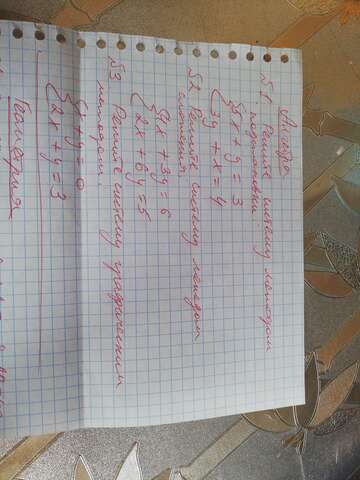 Алгебра
№1 Решите систему методом
подстановки:
{5x + y = 3
{3y + x = 4
№2 Решите систему методом
сложения
{9x + 3y = 6
{2x + 6y = 5
№3 Решите систему графическим
методом:
y = 0
{2x + y = 3
Геометрия